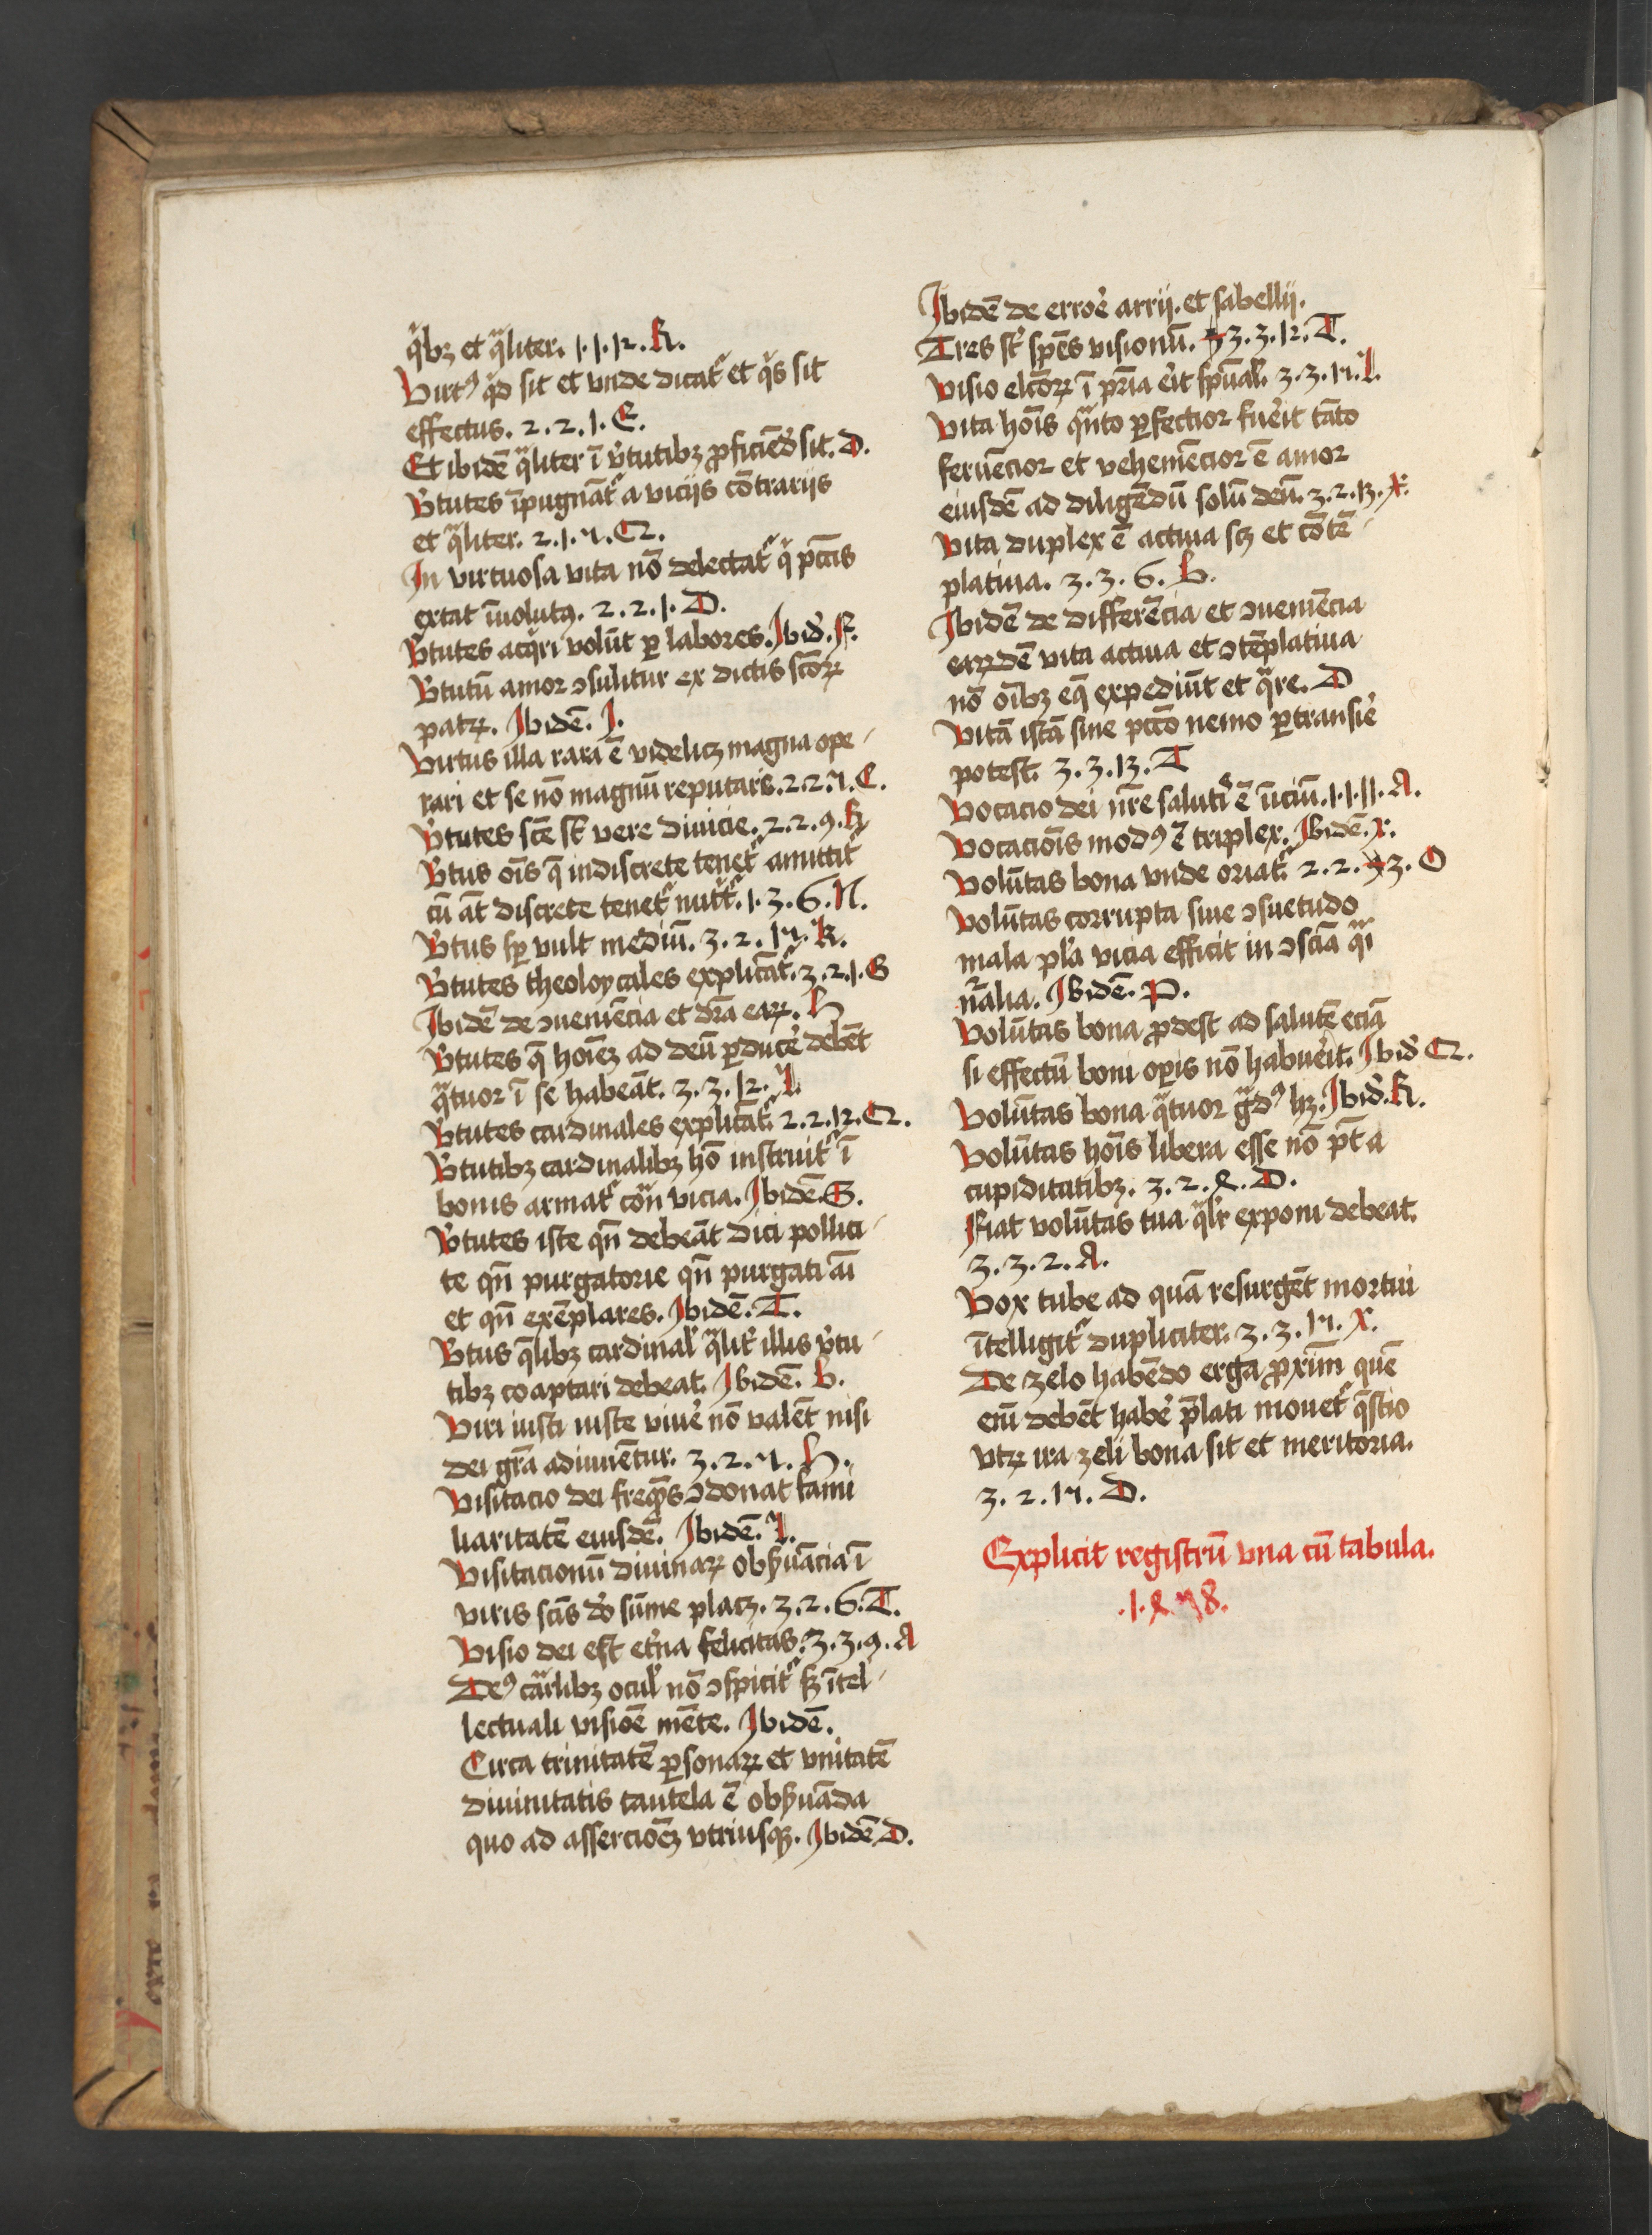 qͥbꝫ et qᷓliter. 1.1.12. K.
Virtꝰ qͥd sit et vnde dicat᷑ et qͥs sit
effectus. 2.2.1. E.
Et ibidē qᷓliter ī v̓tutibꝫ ꝓficiēd̓ sit. D.
V̓tutes īpugnāt᷑ a viciis cōtrariis
et qᷓliter. 2.1.7. Q.
In virtuosa vita nō delectat᷑ qͥ pctīs
extat īuolutꝰ. 2.2.1. D.
V̓tutes acqͥri volūt ꝑ labores. Ibid̓. F.
V̓tutū amor ꝯsulitur ex dictis sctōꝝ
patꝝ. Ibidē. I.
Virtus illa rara ē videlicꝫ magna ope
rari et se nō magnū reputaris. 2.2.7. C.
V̓tutes scē st̄ vere diuicie. 2.2.9. K
V̓tus oīs q̄ indiscrete tenet᷑ amittit᷑
cū āt discrete tenet᷑ nut᷑t᷑. 1.3.6. N.
V̓tus sꝑ vult mediū. 3.2.17. K.
V̓tutes theoloycales explicāt᷑. 3.2.1. G
Ibidē de ꝯueniēcia et dr̄a eaꝝ. H
V̓tutes q̄ hoīeꝫ ad deū ꝑducē debēt
qᷓtuor ī se habeāt. 3.3.12. I.
V̓tutes cardinales explicāt᷑. 2.2.12. Q.
V̓tutibꝫ cardinalibꝫ hō instruit᷑ ī
bonis armat᷑ cōᷓ vicia. Ibidē. G.
V̓tutes iste qn̄ debeāt dici pollici
te qn̄ purgatorie qn̄ purgati aī
et qn̄ exēplares. Ibidē. T.
V̓tus q̄libꝫ cardinal̓ qᷓlit̓ illis v̓tu
tibꝫ coaptari debeat. Ibidē. V.
Viri iusti iuste viue̓ nō valēt nisi
dei gr̄a adiuuētur. 3.2.7. H.
Visitacio dei freqn̄s ꝯdonat fami
liaritatē eiusdē. Ibidē. I.
Visitacionū diuinaꝝ obẜuācia ī
viris sc̄is d̓o sūme placꝫ. 3.2.6. T.
Visio dei est et̓na felicitas. 3.3.9. A
Deꝰ cārlibꝫ ocul̓ nō ꝯspicit᷑ sꝫ ītel
lectuali visiōe mēte. Ibidē.
Circa trinitatē ꝑsonaꝝ et vnitatē
diuinitatis cautela ē obẜuāda
quo ad assercioēꝫ vtriusqꝫ. Ibidē D.
Ibidē de erroē arrij. et sabellij.
Tres st̄ spēs visionū. 3.3.12. T.
Visio elc̄oꝝ ī pr̄ia erit spūal̓. 3.3.17. I.
Vita hoīs qᷓnto ꝑfectior fue̓it tāto
feruēcior et vehemēcior ē amor
eiusdē ad diligēdū solū deū. 3.2.13. X.
Vita duplex ē actiua scꝫ et cōtē
platiua. 3.3.6. V.
Ibidē de differēcia et ꝯueniēcia
eaꝝdē vita actiua et ꝯtēplatiua
nō oībꝫ eqͣ expediūt et qᷓre. D
Vitā istā sine pctō nemo ꝑtransie̓
potest. 3.3.13. T
Vocacio dei nr̄e saluti̓s ē īiciū. 1.1.11. A.
Vocaciōis modꝰ ē triplex. Ibidē. X.
Volūtas bona vnde oriat᷑. 2.2.3. O
Volūtas corrupta siue ꝯsuetudo
mala pl̓a vicia efficit in ꝯsciā qᷓi
nᷓalia. Ibidē. P.
Volūtas bona ꝓdest ad salutē eciā
si effectū boni oꝑis nō habue̓it. Ibid̓ Q.
Volūtas bona qᷓtuor gᷓdꝰ hꝫ. Ibid̓. K.
Volūtas hoīs libera esse nō pt̄ a
cupiditatibꝫ. 3.2.4. D.
Fiat volūtas tua qᷓlr̓ exponi debeat.
3.3.2. A.
Vox tube ad quā resurgēt mortui
ītelligit᷑ dupliciter. 3.3.17. X.
De zelo habēdo erga ꝓxim̄ quē
eciā debēt habe̓ p̄lati mouet᷑ q̄stio
vtꝝ ira zeli bona sit et meritoria.
3.2.17. D.
Explicit registrū vna cū tabula.
.1.4.78.